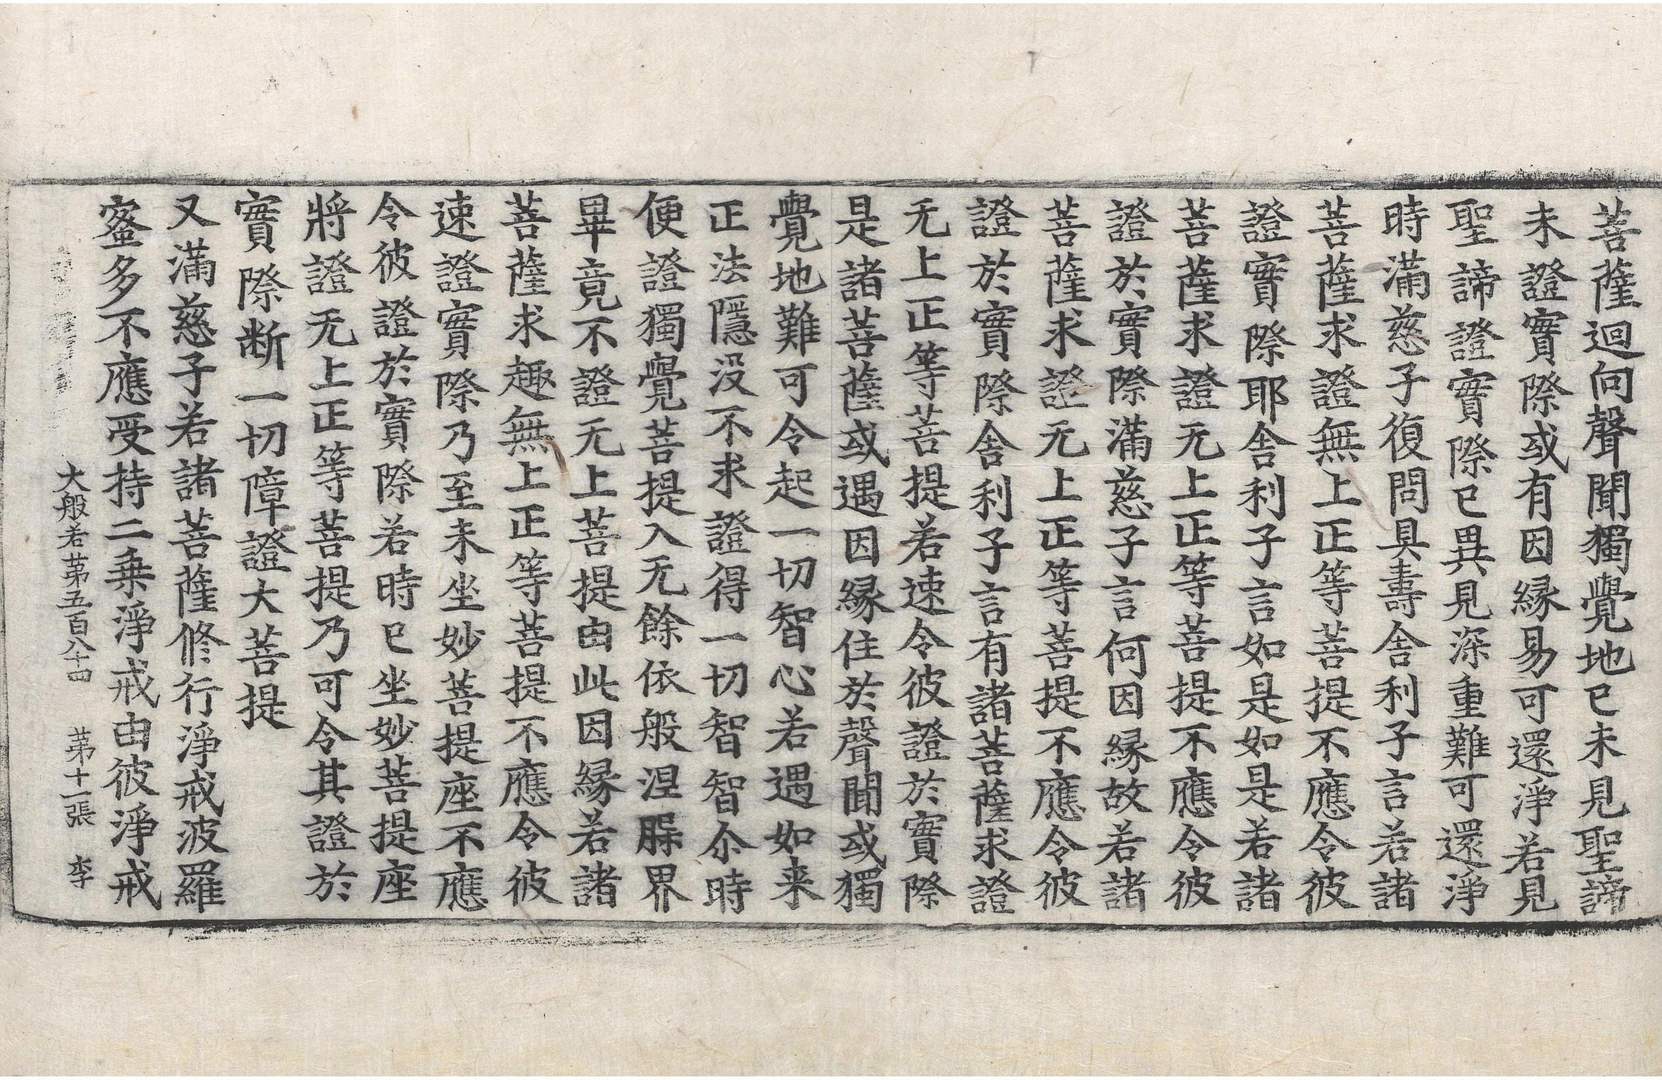 菩薩迴向聲聞獨覺地已未見聖諦
未證實際或有因緣易可還淨若見
聖諦證實際已異見深重難可還淨
時滿慈子復問具壽舍利子言若諸
菩薩求證無上正等菩提不應令彼
證實際耶舍利子言如是如是若諸
菩薩求證无上正等菩提不應令彼
證於實際滿慈子言何因緣故若諸
菩薩求證无上正等菩提不應令彼
證於實際舍利子言有諸菩薩求證
无上正等菩提若速令彼證於實際
是諸菩薩或遇因緣住於聲聞或獨
覺地難可令起一切智心若遇如来
正法隱没不求證得一切智智尒時
便證獨覺菩提入无餘依般涅槃界
畢竟不證无上菩提由此因緣若諸
菩薩求趣無上正等菩提不應令彼
速證實際乃至未坐妙菩提座不應
令彼證於實際若時已坐妙菩提座
將證无上正等菩提乃可令其證於
實際断一切障證大菩提
又滿慈子若諸菩薩修行淨戒波羅
蜜多不應受持二乗淨戒由彼淨戒
大般若第五百八十四 第十一張 李